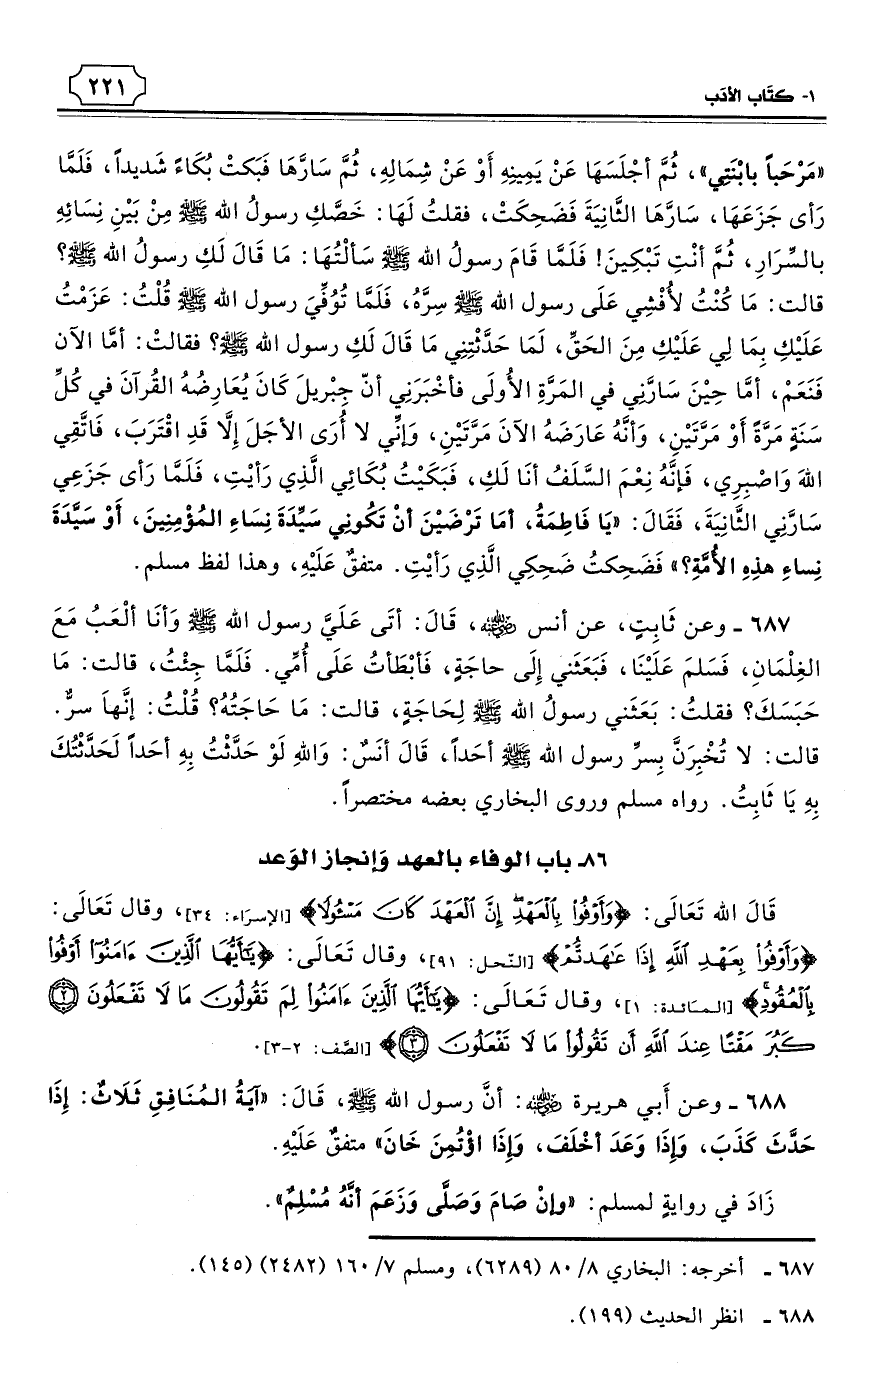 ١- كتَاب الأدَب
٢٢١
«مَرْحَباً بابْنَتِي»، ثُمَّ أجْلَسَهَا عَنْ يَمِينِهِ أوْ عَنْ شِمَالِهِ، ثُمَّ سَارَّهَا فَبَكتْ بُكَاءً شَديداً، فَلَمَّا
رَأى جَزَعَهَا، سَارَّهَا الثَّانِيَةَ فَضَحِكَتْ، فقلتُ لَهَا: خَصَّكِ رسولُ الله ﷺ مِنْ بَيْنِ نِسَائِهِ
بالسِّرَارِ، ثُمَّ أنْتِ تَبْكِينَ! فَلَمَّا قَامَ رسولُ الله ﷺ سَألْتُهَا: مَا قَالَ لَكِ رسولُ الله ﷺ؟
قالت: مَا كُنْتُ لأُفْشِي عَلَى رسول الله ﷺ سِرَّهُ، فَلَمَّا تُوُفِّيَ رسول الله ﷺ قُلْتُ: عَزَمْتُ
عَلَيْكِ بِمَا لِي عَلَيْكِ مِنَ الحَقِّ، لَمَا حَدَّثْتِنِي مَا قَالَ لَكِ رسول الله ﷺ؟ فقالتْ: أمَّا الآن
فَنَعَمْ، أمَّا حِيْنَ سَارَّنِي في المَرَّةِ الأُولَى فأخْبَرَنِي أنّ جِبْريلَ كَانَ يُعَارِضُهُ القُرآنَ في كُلِّ
سَنَةٍ مَرَّةً أوْ مَرَّتَيْنِ، وَأنَّهُ عَارَضَهُ الآنَ مَرَّتَيْنِ، وَإنِّي لا أُرَى الأجَلَ إلَّا قَدِ اقْتَرَبَ، فَاتَّقِي
اللهَ وَاصْبِرِي، فَإنَّهُ نِعْمَ السَّلَفُ أنَا لَكِ، فَبَكَيْتُ بُكَائِي الَّذِي رَأيْتِ، فَلَمَّا رَأى جَزَعِي
سَارَّنِي الثَّانِيَةَ، فَقَالَ: «يَا فَاطِمَةُ، أمَا تَرْضَيْنَ أنْ تَكُونِي سَيِّدَةَ نِسَاءِ المُؤْمِنِينَ، أوْ سَيَّدَةَ
نِساءِ هذِهِ الأُمَّةِ؟» فَضَحِكتُ ضَحِكِي الَّذِي رَأيْتِ. متفقٌ عَلَيْهِ، وهذا لفظ مسلم.
٦٨٧ ـ وعن ثَابِتٍ، عن أنس رضي الله عنه، قَالَ: أتَى عَلَيَّ رسول الله ﷺ وَأنَا ألْعَبُ مَعَ
الغِلْمَانِ، فَسَلمَ عَلَيْنَا، فَبَعَثَني إلَى حاجَةٍ، فَأبْطَأتُ عَلَى أُمِّي. فَلَمَّا جِئْتُ، قالت: مَا
حَبَسَكَ؟ فقلتُ: بَعَثَني رسولُ الله ﷺ لِحَاجَةٍ، قالت: مَا حَاجَتُهُ؟ قُلْتُ: إنَّهاَ سرٌّ.
قالت: لا تُخْبِرَنَّ بِسرِّ رسول الله ﷺ أحَداً، قَالَ أنَسٌ: وَاللهِ لَوْ حَدَّثْتُ بِهِ أحَداً لَحَدَّثْتُكَ
بِهِ يَا ثَابِتُ. رواه مسلم وروى البخاري بعضه مختصراً.
٨٦ـ باب الوفاء بالعهد وَإنجاز الوَعد
قَالَ الله تَعَالَى: ﴿وَأَوْفُوا۟ بِٱلْعَهْدِۖ إِنَّ ٱلْعَهْدَ كَانَ مَسْـُٔولًا﴾ [الإسرَاء: ٣٤]، وقال تَعَالَى:
﴿وَأَوْفُوا۟ بِعَهْدِ ٱللَّهِ إِذَا عَـٰهَدتُّمْ﴾ [النّحل: ٩١]، وقال تَعَالَى: ﴿يَـٰٓأَيُّهَا ٱلَّذِينَ ءَامَنُوٓا۟ أَوْفُوا۟
بِٱلْعُقُودِۚ﴾ [المَائدة: ١]، وقال تَعَالَى: ﴿يَـٰٓأَيُّهَا ٱلَّذِينَ ءَامَنُوا۟ لِمَ تَقُولُونَ مَا لَا تَفْعَلُونَ ٢
كَبُرَ مَقْتًا عِندَ ٱللَّهِ أَن تَقُولُوا۟ مَا لَا تَفْعَلُونَ ٣﴾ [الصَّف: ٢-٣].
٦٨٨ ـ وعن أَبي هريرة رضي الله عنه: أنَّ رسول الله ﷺ، قَالَ: «آيَةُ المُنَافِقِ ثَلَاثٌ: إذَا
حَدَّثَ كَذَبَ، وَإذَا وَعَدَ أخْلَفَ، وَإذَا اؤْتُمِنَ خَانَ» متفقٌ عَلَيْهِ.
زَادَ في روايةٍ لمسلم: «وإنْ صَامَ وَصَلَّى وَزَعَمَ أنَّهُ مُسْلِمٌ».
٦٨٧ ـ أخرجه: البخاري ٨/ ٨٠ (٦٢٨٩)، ومسلم ٧/ ١٦٠ (٢٤٨٢) (١٤٥).
٦٨٨ ـ انظر الحديث (١٩٩).